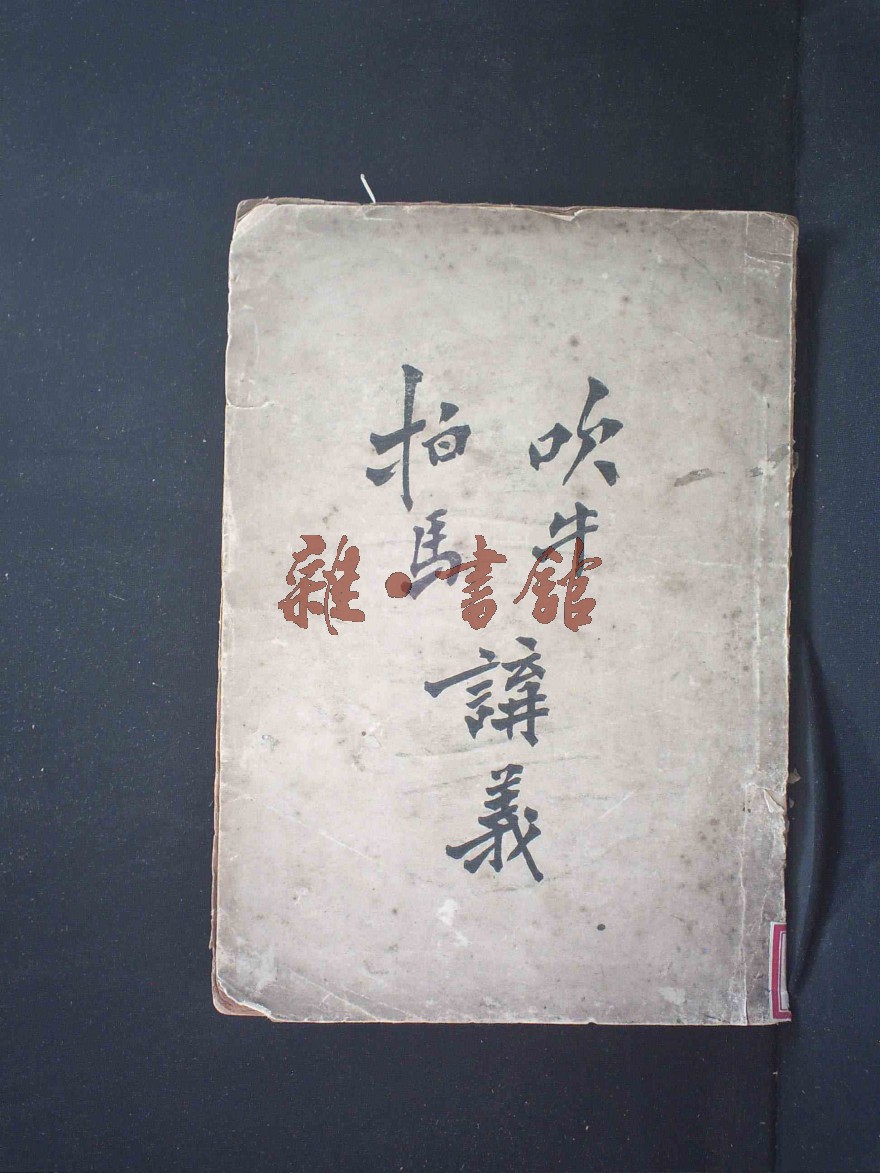 吹牛
拍馬
講義
雜·書館